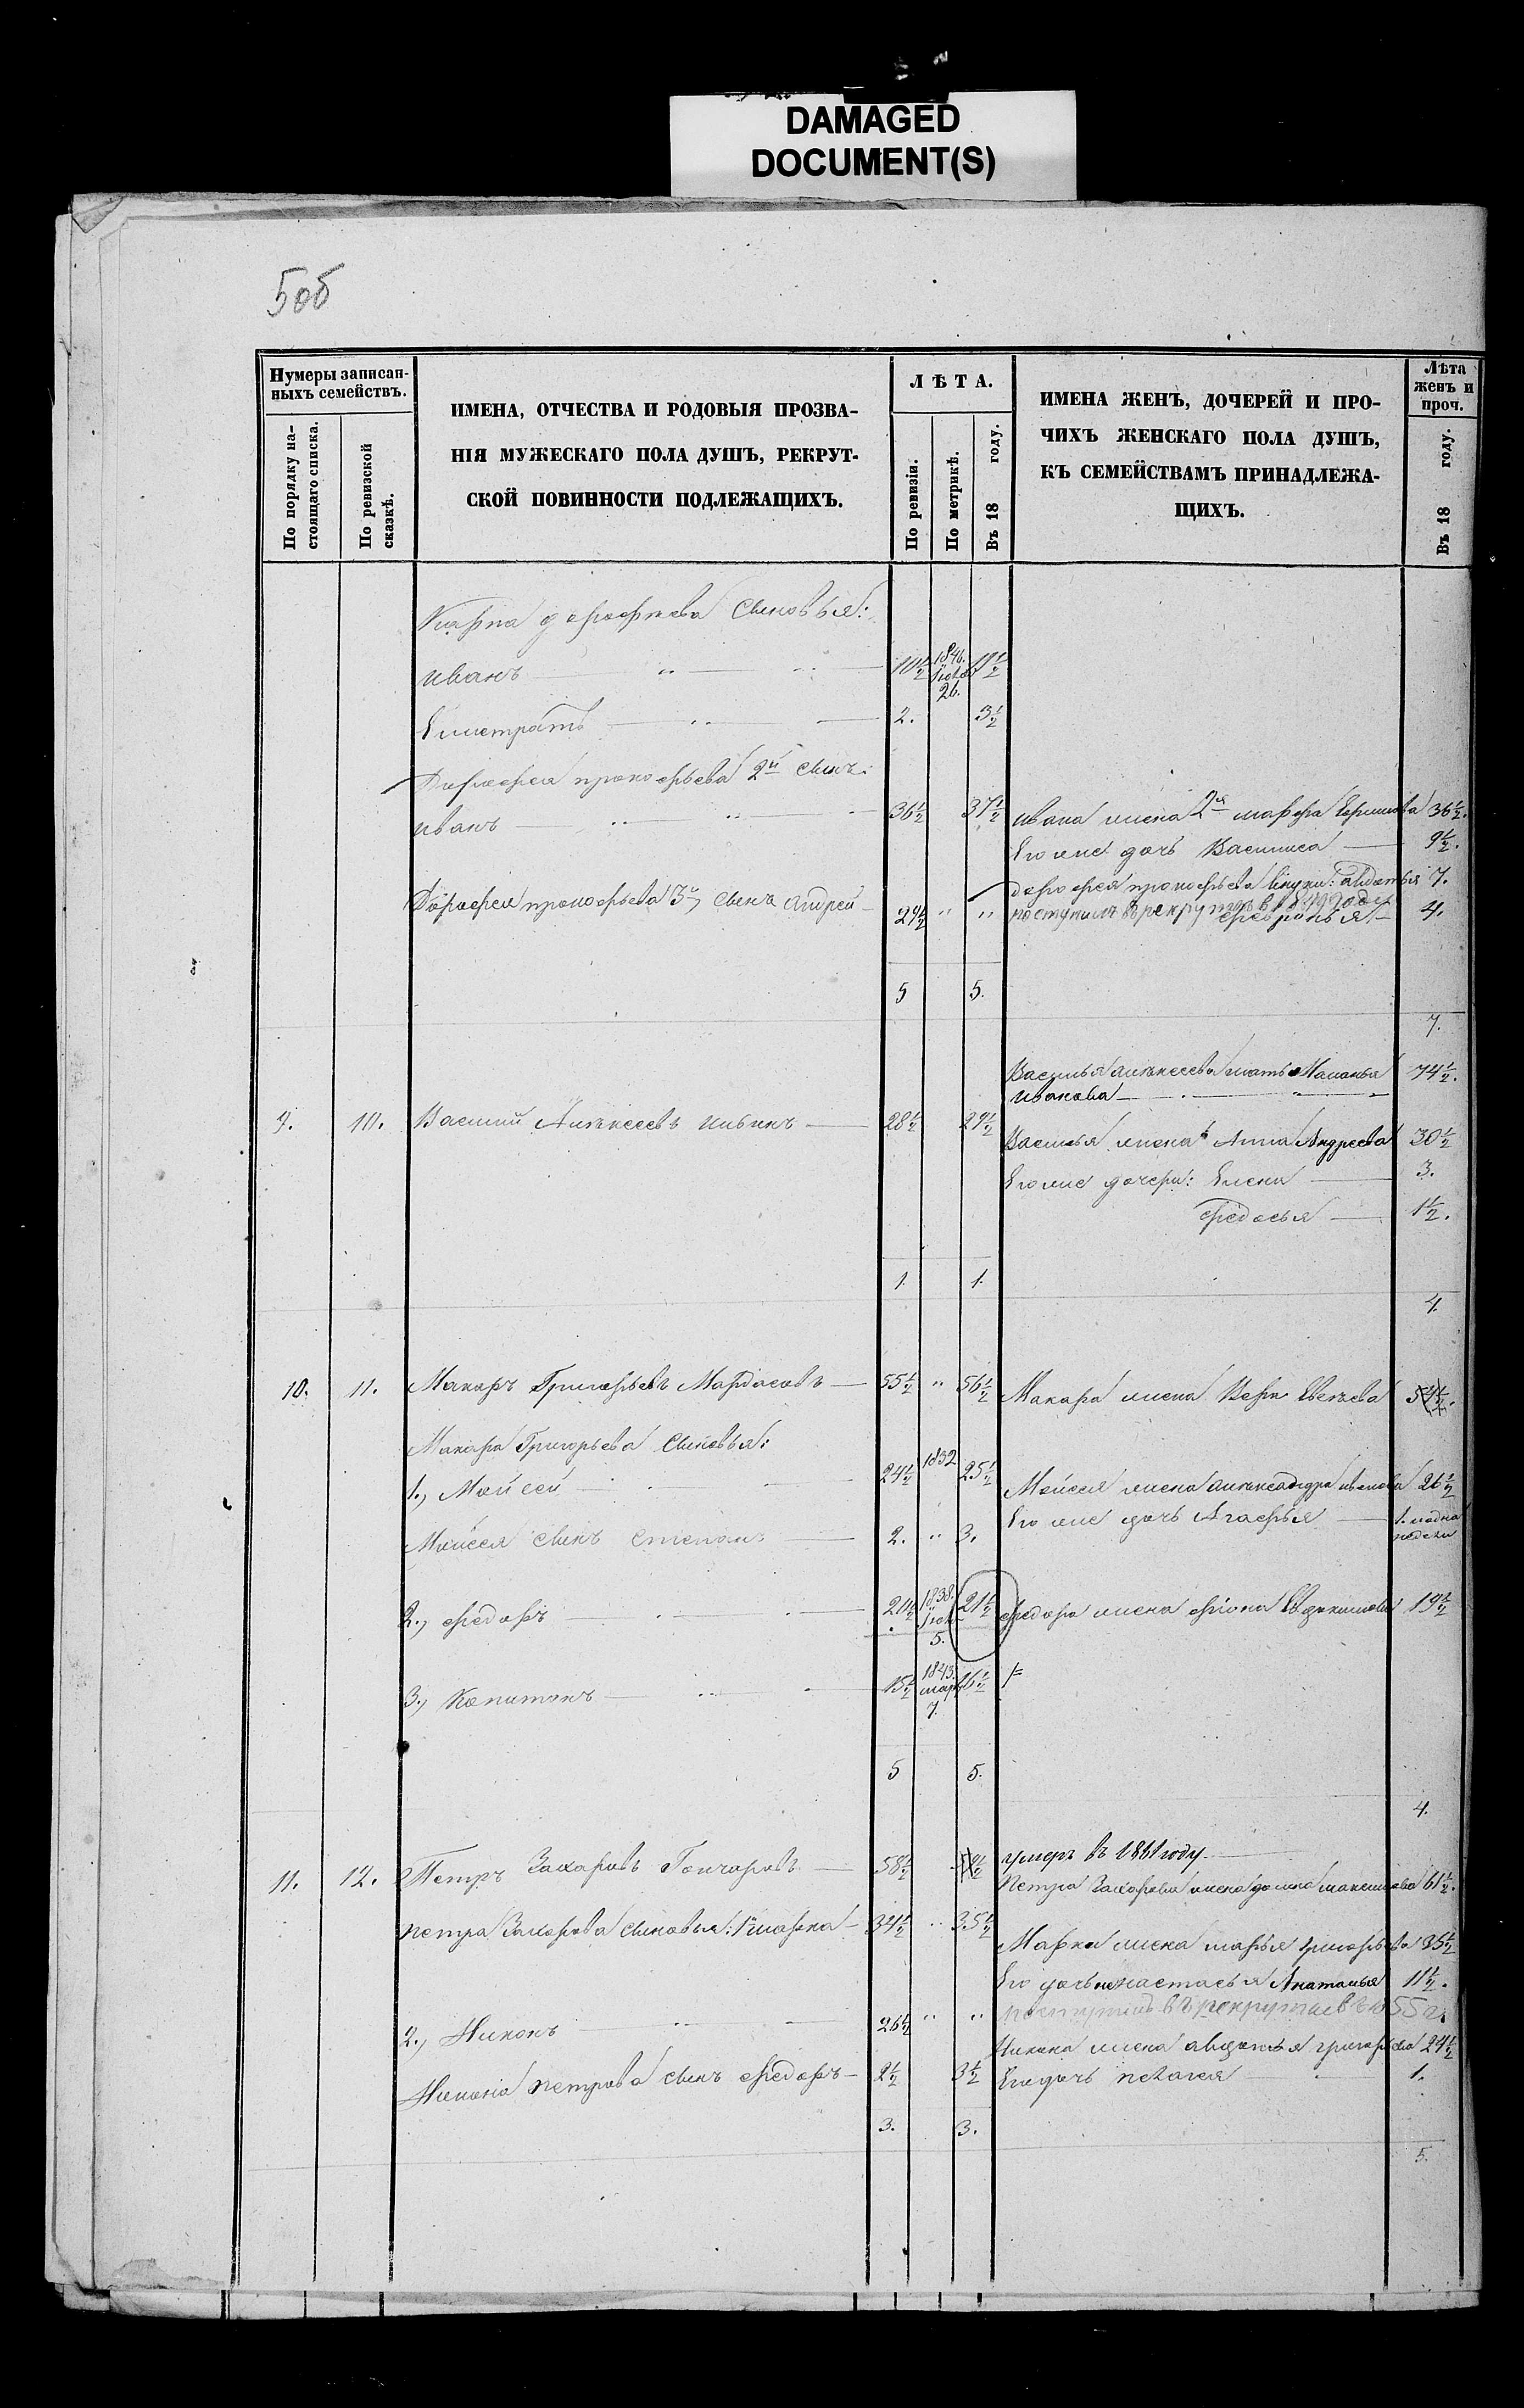 DAMAGED
DOCUMENT(S)
5об
Нумеры записан-
ныхъ семействъ.
По порядку на-
стоящаго списка.
По ревизской
сказкѣ.
ИМЕНА, ОТЧЕСТВА И РОДОВЫЯ ПРОЗВА-
НІЯ МУЖЕСКАГО ПОЛА ДУШЪ, РЕКРУТ-
СКОЙ ПОВИННОСТИ ПОДЛЕЖАЩИХЪ.
ЛѢТА.
По ревизіи.
По метрикѣ.
Въ 18 году.
ИМЕНА ЖЕНЪ, ДОЧЕРЕЙ И ПРО-
ЧИХЪ ЖЕНСКАГО ПОЛА ДУШЪ,
КЪ СЕМЕЙСТВАМЪ ПРИНАДЛЕЖА-
ЩИХЪ.
Лѣта
женъ и
проч.
Въ 18 году.
Карпа дорофѣева сыновья:
иванъ 10½ 1846. 26. 11½
Елистратъ 2. 3½
Дорофея прокофьева 2й сынъ:
иванъ 36½ 37½ ивана жена 2я марфа Ефимова 36½.
Его же дочь Василиса 9½.
дорофея прокофьева внуки: авдотья 7.
Дорофея прокофьева 3й сынъ андрей 29½ " " поступилъ в рекруты в году
февронья 4.
5 5.
7.
Василья алексеева мать Маланья 74½.
иванова
9. 10. Василий Алексеевъ 28½ 29½
Василья жена Анна Андреева 30½
Его же дочери: Елена 3.
федосья 1½.
1. 1.
4.
10. 11. Макаръ Григорьевъ Мардасовъ 55½ " 56½ Макара жена Вера 54½.
Макара Григорьева сыновья:
1., Мойсей 24½ 1832 25½ Мойсея жена александра иванова 26½
Его же дочь Агафья 1. недели
Мойсея сынъ степанъ 2. " 3.
2., федоръ 20½ 1838. 5. 21½ федора жена фіона Евдокимова 19½
3., Капитонъ 15½ 1843. мар. 7. 16½
5 5.
4.
11. 12. Петръ Захаровъ Гончаровъ 58½ 59½ умеръ въ 1861 году
Петра Захарова жена домна максимова 61½.
петра Захарова сыновья: 1й марка 34½ " 35½
Марка жена марья григорьева 35½
Его дочь настасья Анатолья 11½.
2., Никонъ 26½ " " поступилъ въ рекруты въ 1855 г.
Никона жена авдотья григорьева 24½
Никона петрова сынъ федоръ 2½ 3½ Его дочь пелагея 1.
3. 3.
5.